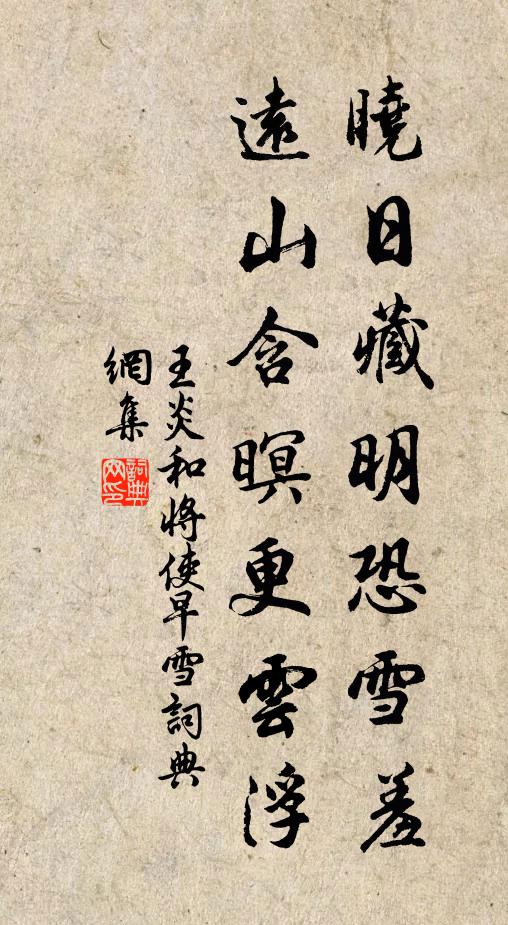 曉日藏明恐雪羞
遠山含暝更雲浮
王炎和將使早雪詞典
網集
詞典網印